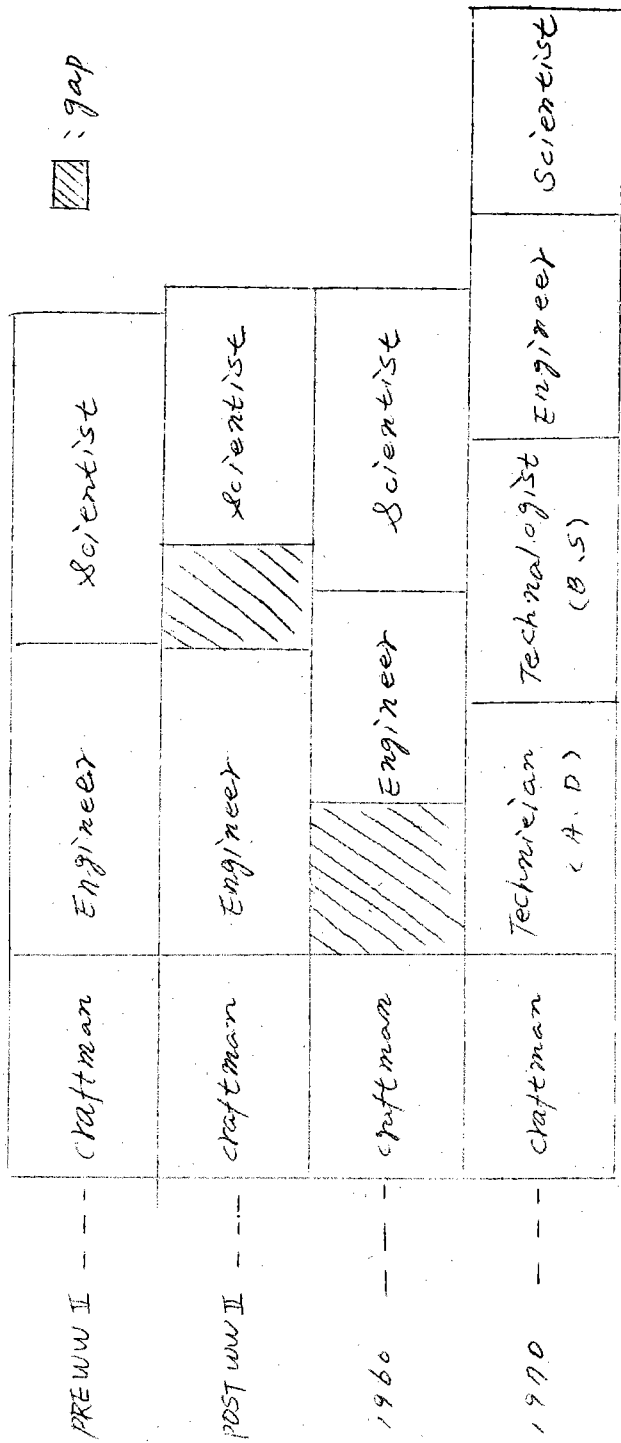 : gap
PRE WW II --- Craftman Engineer Scientist
POST WW II --- craftman Engineer Scientist
1960 --- craftman Engineer Scientist
1970 --- craftman Technician (A.D) Technalogist (B.S) Engineer Scientist